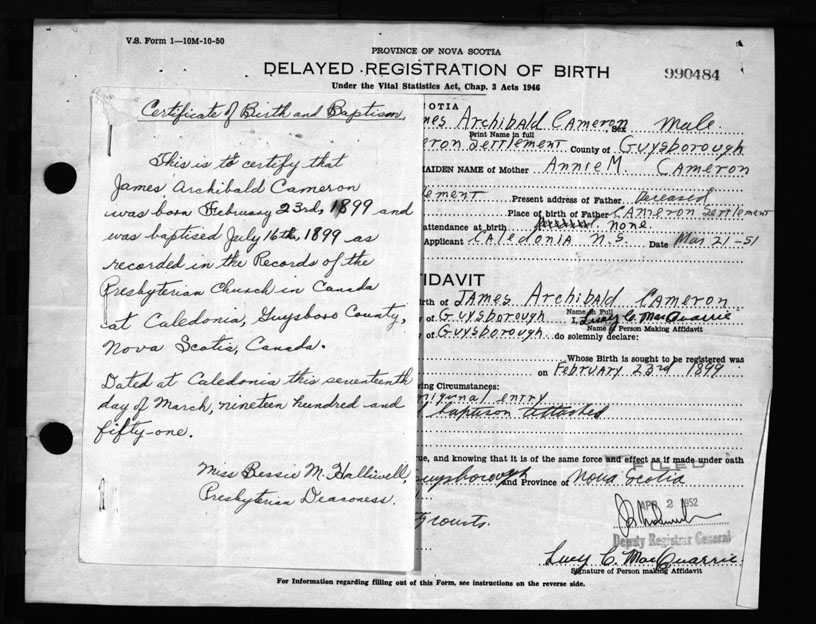 V.S. Form 1—10M-10-50
PROVINCE OF NOVA SCOTIA
DELAYED REGISTRATION OF BIRTH
990484
Under the Vital Statistics Act, Chap. 3 Acts 1946
Certificate of Birth and Baptism.
This is to certify that
James Archibald Cameron
was born February 23rd, 1899 and
was baptised July 16th, 1899 as
recorded in the Records of the
Presbyterian Church in Canada
at Caledonia, Guysboro County,
Nova Scotia, Canada.
Dated at Caledonia this seventeenth
day of March, nineteen hundred and
fifty-one.
Miss Bessie M. Halliwell,
Presbyterian Deaconess.
COTIA
mes Archibald Cameron Sex Male
Print Name in full
eron Settlement County of Guysborough
MAIDEN NAME of Mother Annie M. Cameron
lement Present address of Father Deceased
Place of birth of Father Cameron Settlement
attendance at birth none
Applicant Caledonia N.S. Date Mar 21-51
FIDAVIT
irth of James Archibald Cameron
Name in Full
y of Guysborough I, Lucy C. MacQuarrie
Name of Person Making Affidavit
y of Guysborough do solemnly declare:
Whose Birth is sought to be registered was
on February 23rd 1899
ing Circumstances:
riginal entry
baptism attached
ue, and knowing that it is of the same force and effect as if made under oath
FILED
uysborough and Province of Nova Scotia
APR 2 1952
Courts.
Deputy Registrar General
Lucy C. MacQuarrie
Signature of Person making Affidavit
For Information regarding filling out of this Form, see instructions on the reverse side.